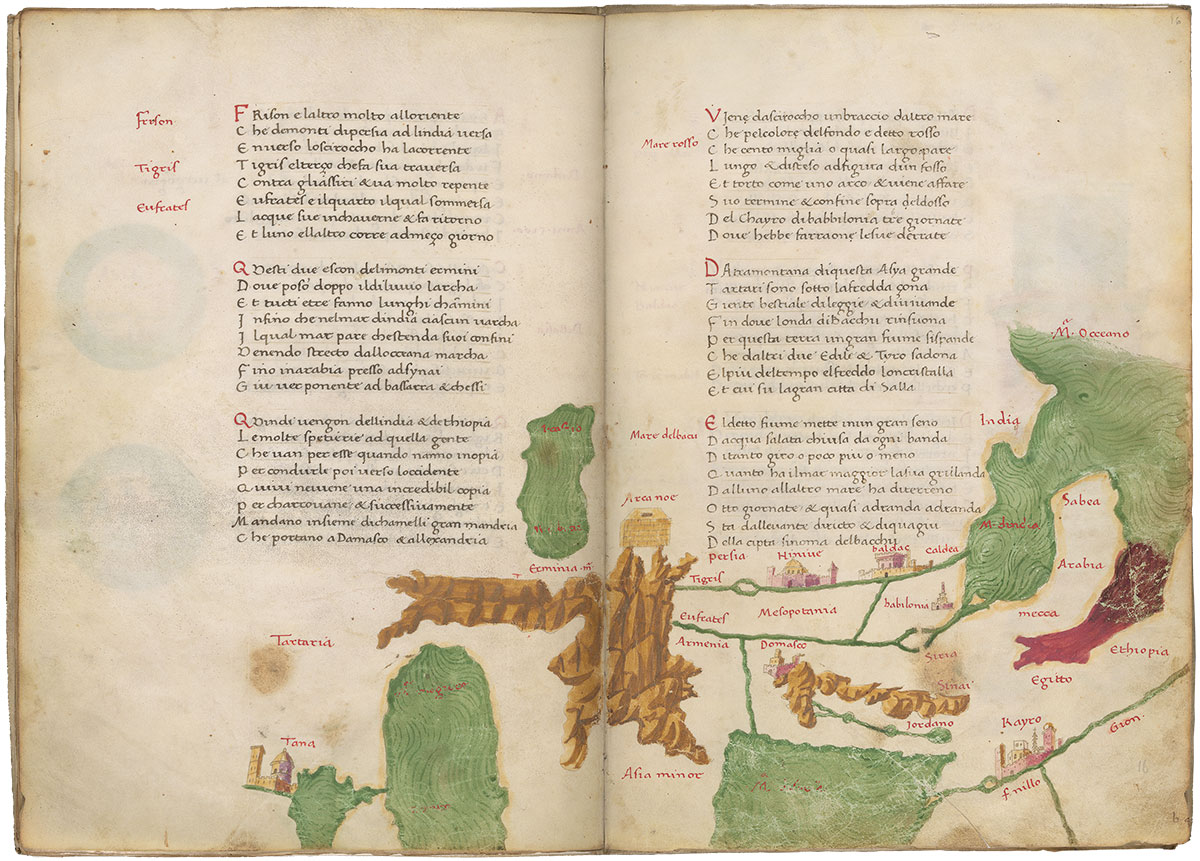 Frison
Tigris
Eufrates
FRison e laltro molto alloriente
Che demonti dipersia ad lindia versa
Enverso loscirocho ha lacorrente
Tigris elterço chefa sua traversa
Contra gliassiri & va molto repente
Eufrates e ilquarto ilqual sommersa
Lacque sue inchaverne & fa ritorno
Et luno ellaltro corre admeço giorno
QVesti due escon delimonti ermini
Dove poso doppo ildiluvio larcha
Et tucti etre fanno lunghi chamini
Jnfino che nelmar dindia ciascun varcha
Jlqual mar pare chestenda suoi confini
Venendo strecto dalloceana marcha
Fino inarabia presso adsynai
Giu ver ponente ad bassarra & chessi
QVindi vengon dellindia & dethiopia
Lemolte spetierie ad quella gente
Che van per esse quando nanno inopia
Per condurle poi verso loccidente
Quivi neviene una incredibil copia
Per charovane & successivamente
Mandano insieme dichamelli gran mandria
Che portano a Damasco & allexandria
Erminia m
Tartaria
Tana
16
Mare rosso
VJene dascirocho unbraccio daltro mare
Che pelcolore delfondo e detto rosso
Che cento miglia o quasi largo pare
Lungo & disteso adfigura dun fosso
Et torto come uno arco & viene affare
Suo termine & confine sopra deldosso
Del Chayro dibabbilonia tre giornate
Dove hebbe farraone lesue derrate
DAtramontana diquesta Asya grande
Tartari sono sotto lafredda çona
Giente bestiale dileggie & divivande
Fin dove londa dibacchu risuona
Per questa terra un gran fiume sispande
Che daltri due Edile & Tyro sadona
Elpiu deltempo elfreddo loncristalla
Et cui su lagran citta di Salla
Mare delbacu
ELdetto fiume mette inun gran seno
Dacqua salata chiusa da ogni banda
Ditanto giro o poco piu o meno
Quanto ha ilmar maggior lasua grilanda
Dalluno allaltro mare ha diterreno
Otto giornate & quasi adranda adranda
Sta dallevante diricto & diquagiu
Della cipta sinoma delbacchu
M Occeano
India
Arca noe
Sabea
M dindia
Persia
Niniue
baldac
caldea
Tigris
Arabia
babilonia
Mesopotania
Eufrates
mecca
Armenia
Domasco
Siria
Ethiopia
Sinai
Egitto
Iordano
Kayro
Gion
Asia minor
f nillo
16